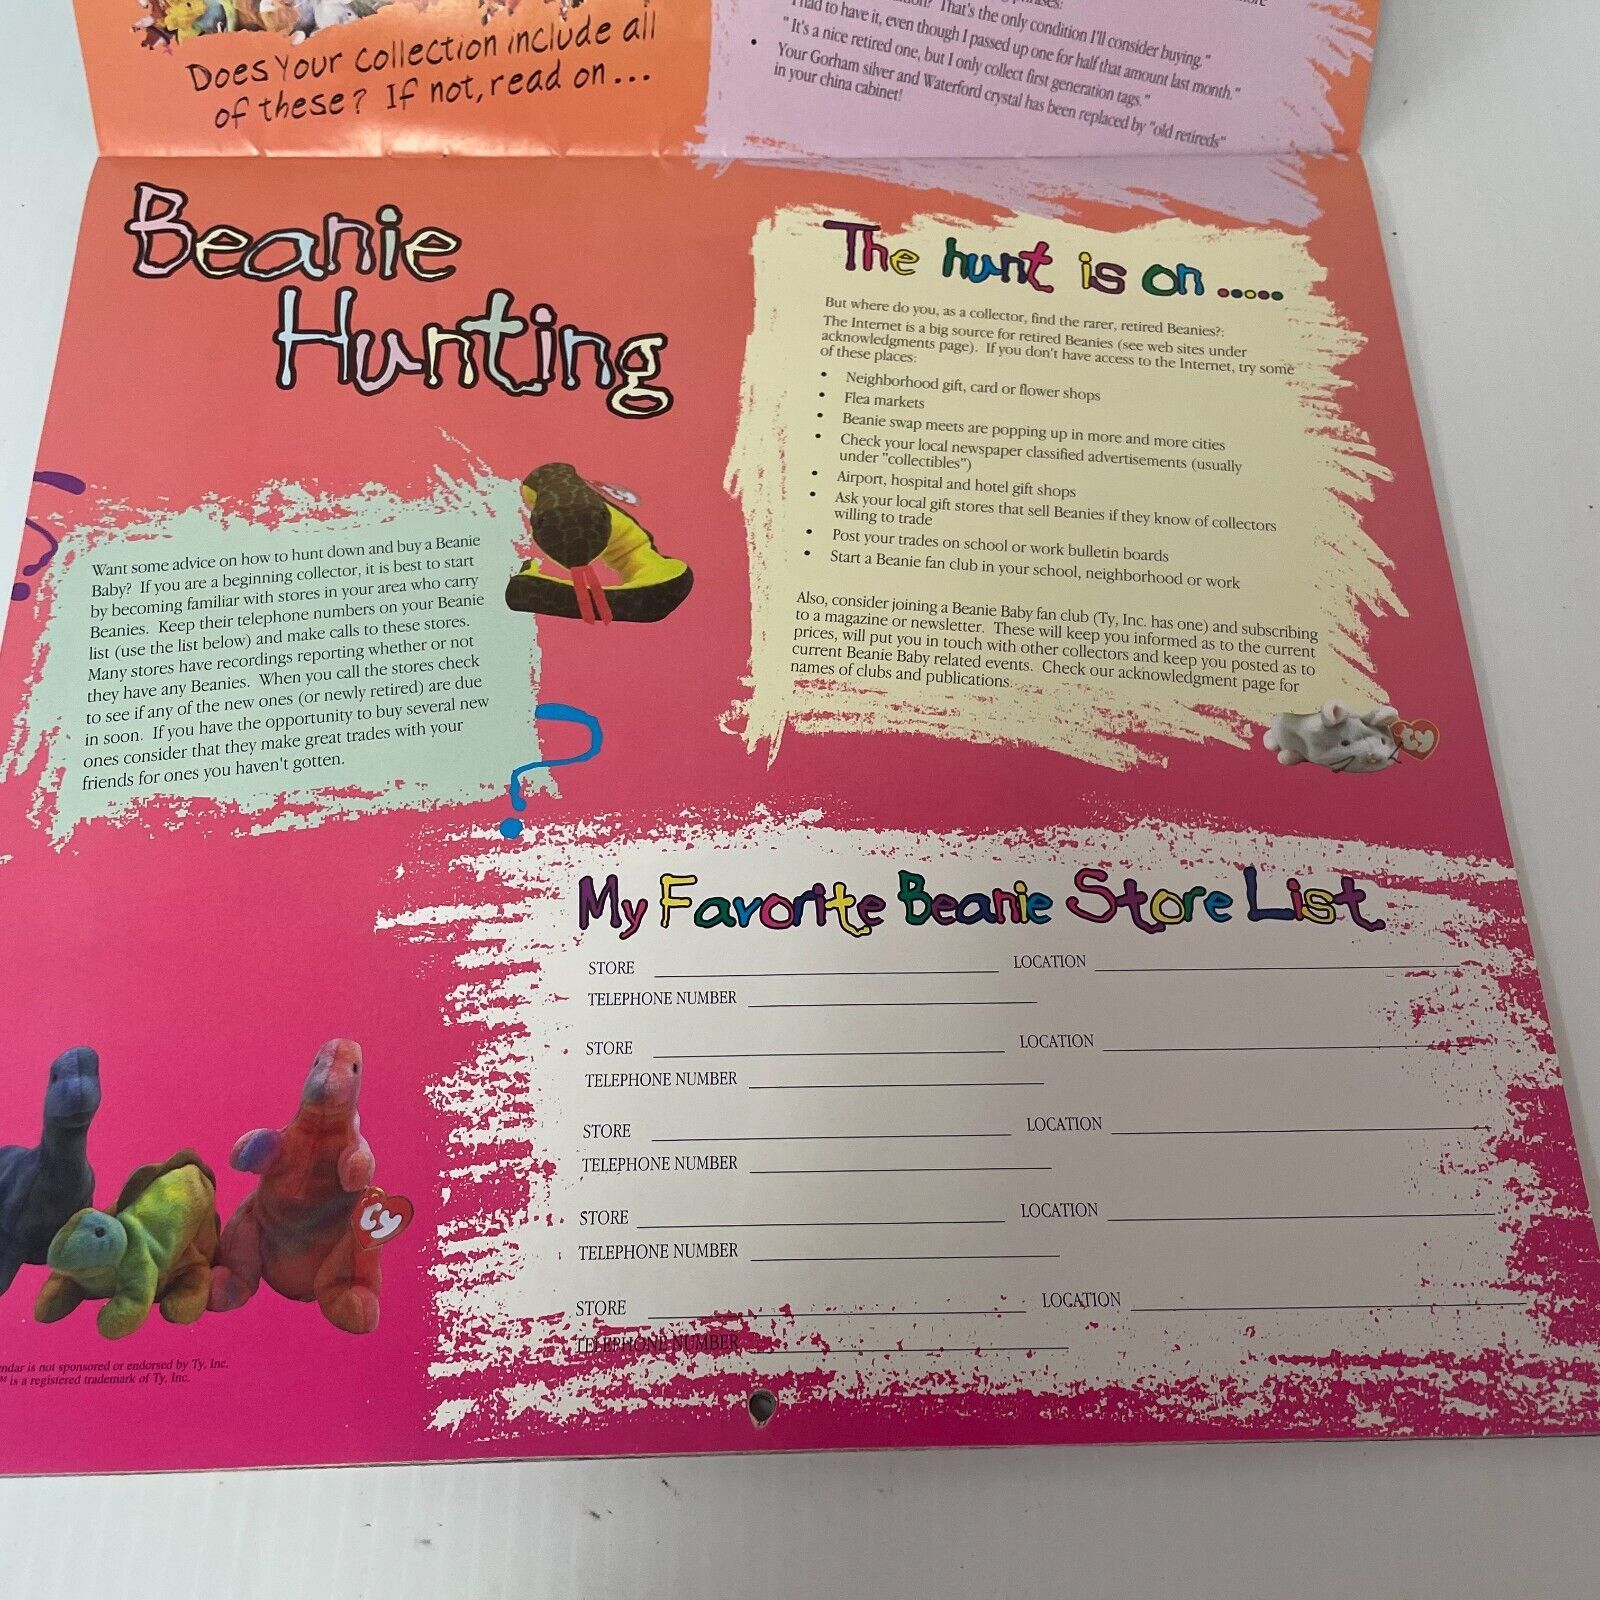 Does Your collection include all
of these? If not, read on...
That's the only condition I'll consider buying."
had to have it, even though I passed up one for half that amount last month."
"It's a nice retired one, but I only collect first generation tags."
• Your Gorham silver and Waterford crystal has been replaced by "old retireds"
in your china cabinet!
Beanie
Hunting
Want some advice on how to hunt down and buy a Beanie
Baby? If you are a beginning collector, it is best to start
by becoming familiar with stores in your area who carry
Beanies. Keep their telephone numbers on your Beanie
list (use the list below) and make calls to these stores.
Many stores have recordings reporting whether or not
they have any Beanies. When you call the stores check
to see if any of the new ones (or newly retired) are due
in soon. If you have the opportunity to buy several new
ones consider that they make great trades with your
friends for ones you haven't gotten.
The hunt is on .....
But where do you, as a collector, find the rarer, retired Beanies?:
The Internet is a big source for retired Beanies (see web sites under
acknowledgments page). If you don't have access to the Internet, try some
of these places:
• Neighborhood gift, card or flower shops
• Flea markets
• Beanie swap meets are popping up in more and more cities
• Check your local newspaper classified advertisements (usually
under "collectibles")
• Airport, hospital and hotel gift shops
• Ask your local gift stores that sell Beanies if they know of collectors
willing to trade
• Post your trades on school or work bulletin boards
• Start a Beanie fan club in your school, neighborhood or work
Also, consider joining a Beanie Baby fan club (Ty, Inc. has one) and subscribing
to a magazine or newsletter. These will keep you informed as to the current
prices, will put you in touch with other collectors and keep you posted as to
current Beanie Baby related events. Check our acknowledgment page for
names of clubs and publications.
ty
My Favorite Beanie Store List
STORE LOCATION
TELEPHONE NUMBER
STORE LOCATION
TELEPHONE NUMBER
STORE LOCATION
TELEPHONE NUMBER
STORE LOCATION
TELEPHONE NUMBER
STORE LOCATION
TELEPHONE NUMBER
ty
ndar is not sponsored or endorsed by Ty, Inc.
™ is a registered trademark of Ty, Inc.